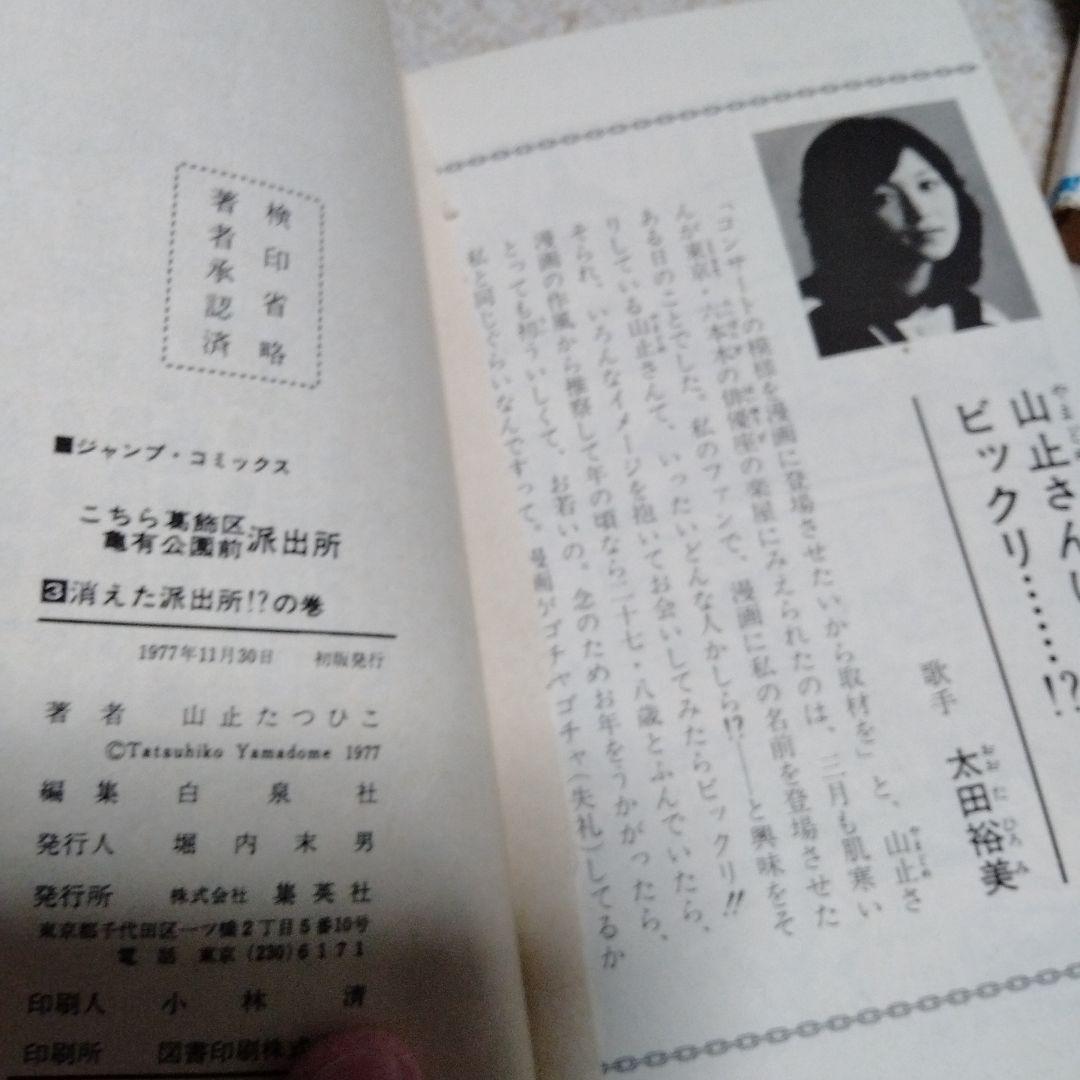 検印省略
著者承認済
■ジャンプ・コミックス
こちら葛飾区
亀有公園前派出所
3消えた派出所!?の巻
1977年11月30日 初版発行
著者 山止たつひこ
©Tatsuhiko Yamadome 1977
編集 白泉社
発行人 堀内末男
発行所 株式会社 集英社
東京都千代田区一ツ橋2丁目5番10号
電話 東京(230)6171
印刷人 小林清
印刷所 図書印刷株式
山止さんに
ビックリ……!?
歌手 太田裕美
「コンサートの模様を漫画に登場させたいから取材を」と、山止さ
んが東京・六本木の俳優座の楽屋にみえられたのは、三月も肌寒い
ある日のことでした。私のファンで、漫画に私の名前を登場させた
りしている山止さんて、いったいどんな人かしら!?――と興味をそ
そられ、いろんなイメージを抱いてお会いしてみたらビックリ!!
漫画の作風から推察して年の頃なら二十七・八歳とふんでいたら、
とっても初ういしくて、お若いの。念のためお年をうかがったら、
私と同じぐらいなんですって。漫画がゴチャゴチャ(失礼)してるか